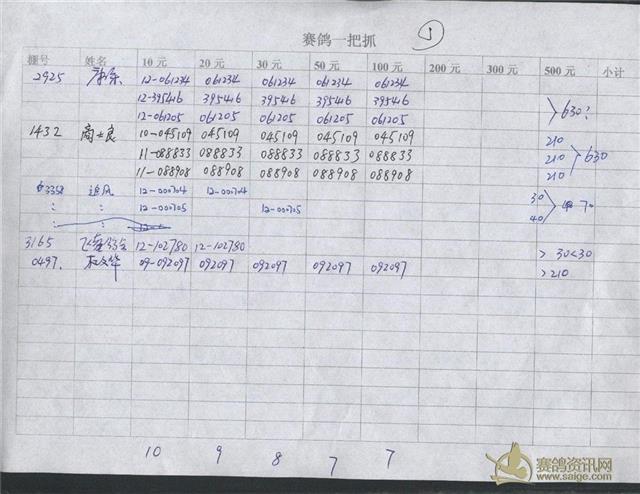 赛鸽一把抓 ①
棚号 姓名 10元 20元 30元 50元 100元 200元 300元 500元 小计
2925 12-061234 061234 061234 061234 061234
12-395416 395416 395416 395416 395416 630?
12-061205 061205 061205 061205 061205
1432 商士良 10-045109 045109 045109 045109 045109 210
11-088833 088833 088833 088833 088833 210 630
11-088908 088908 088908 088908 088908 210
03358 追风 12-000704 12-000704 30
: : 12-000705 12-000705 40 70
: :
3165 12-102780 12-102780 > 30<30
0497. 09-092097 092097 092097 092097 092097 >210
10 9 8 7 7
赛鸽资讯网
www.saige.com